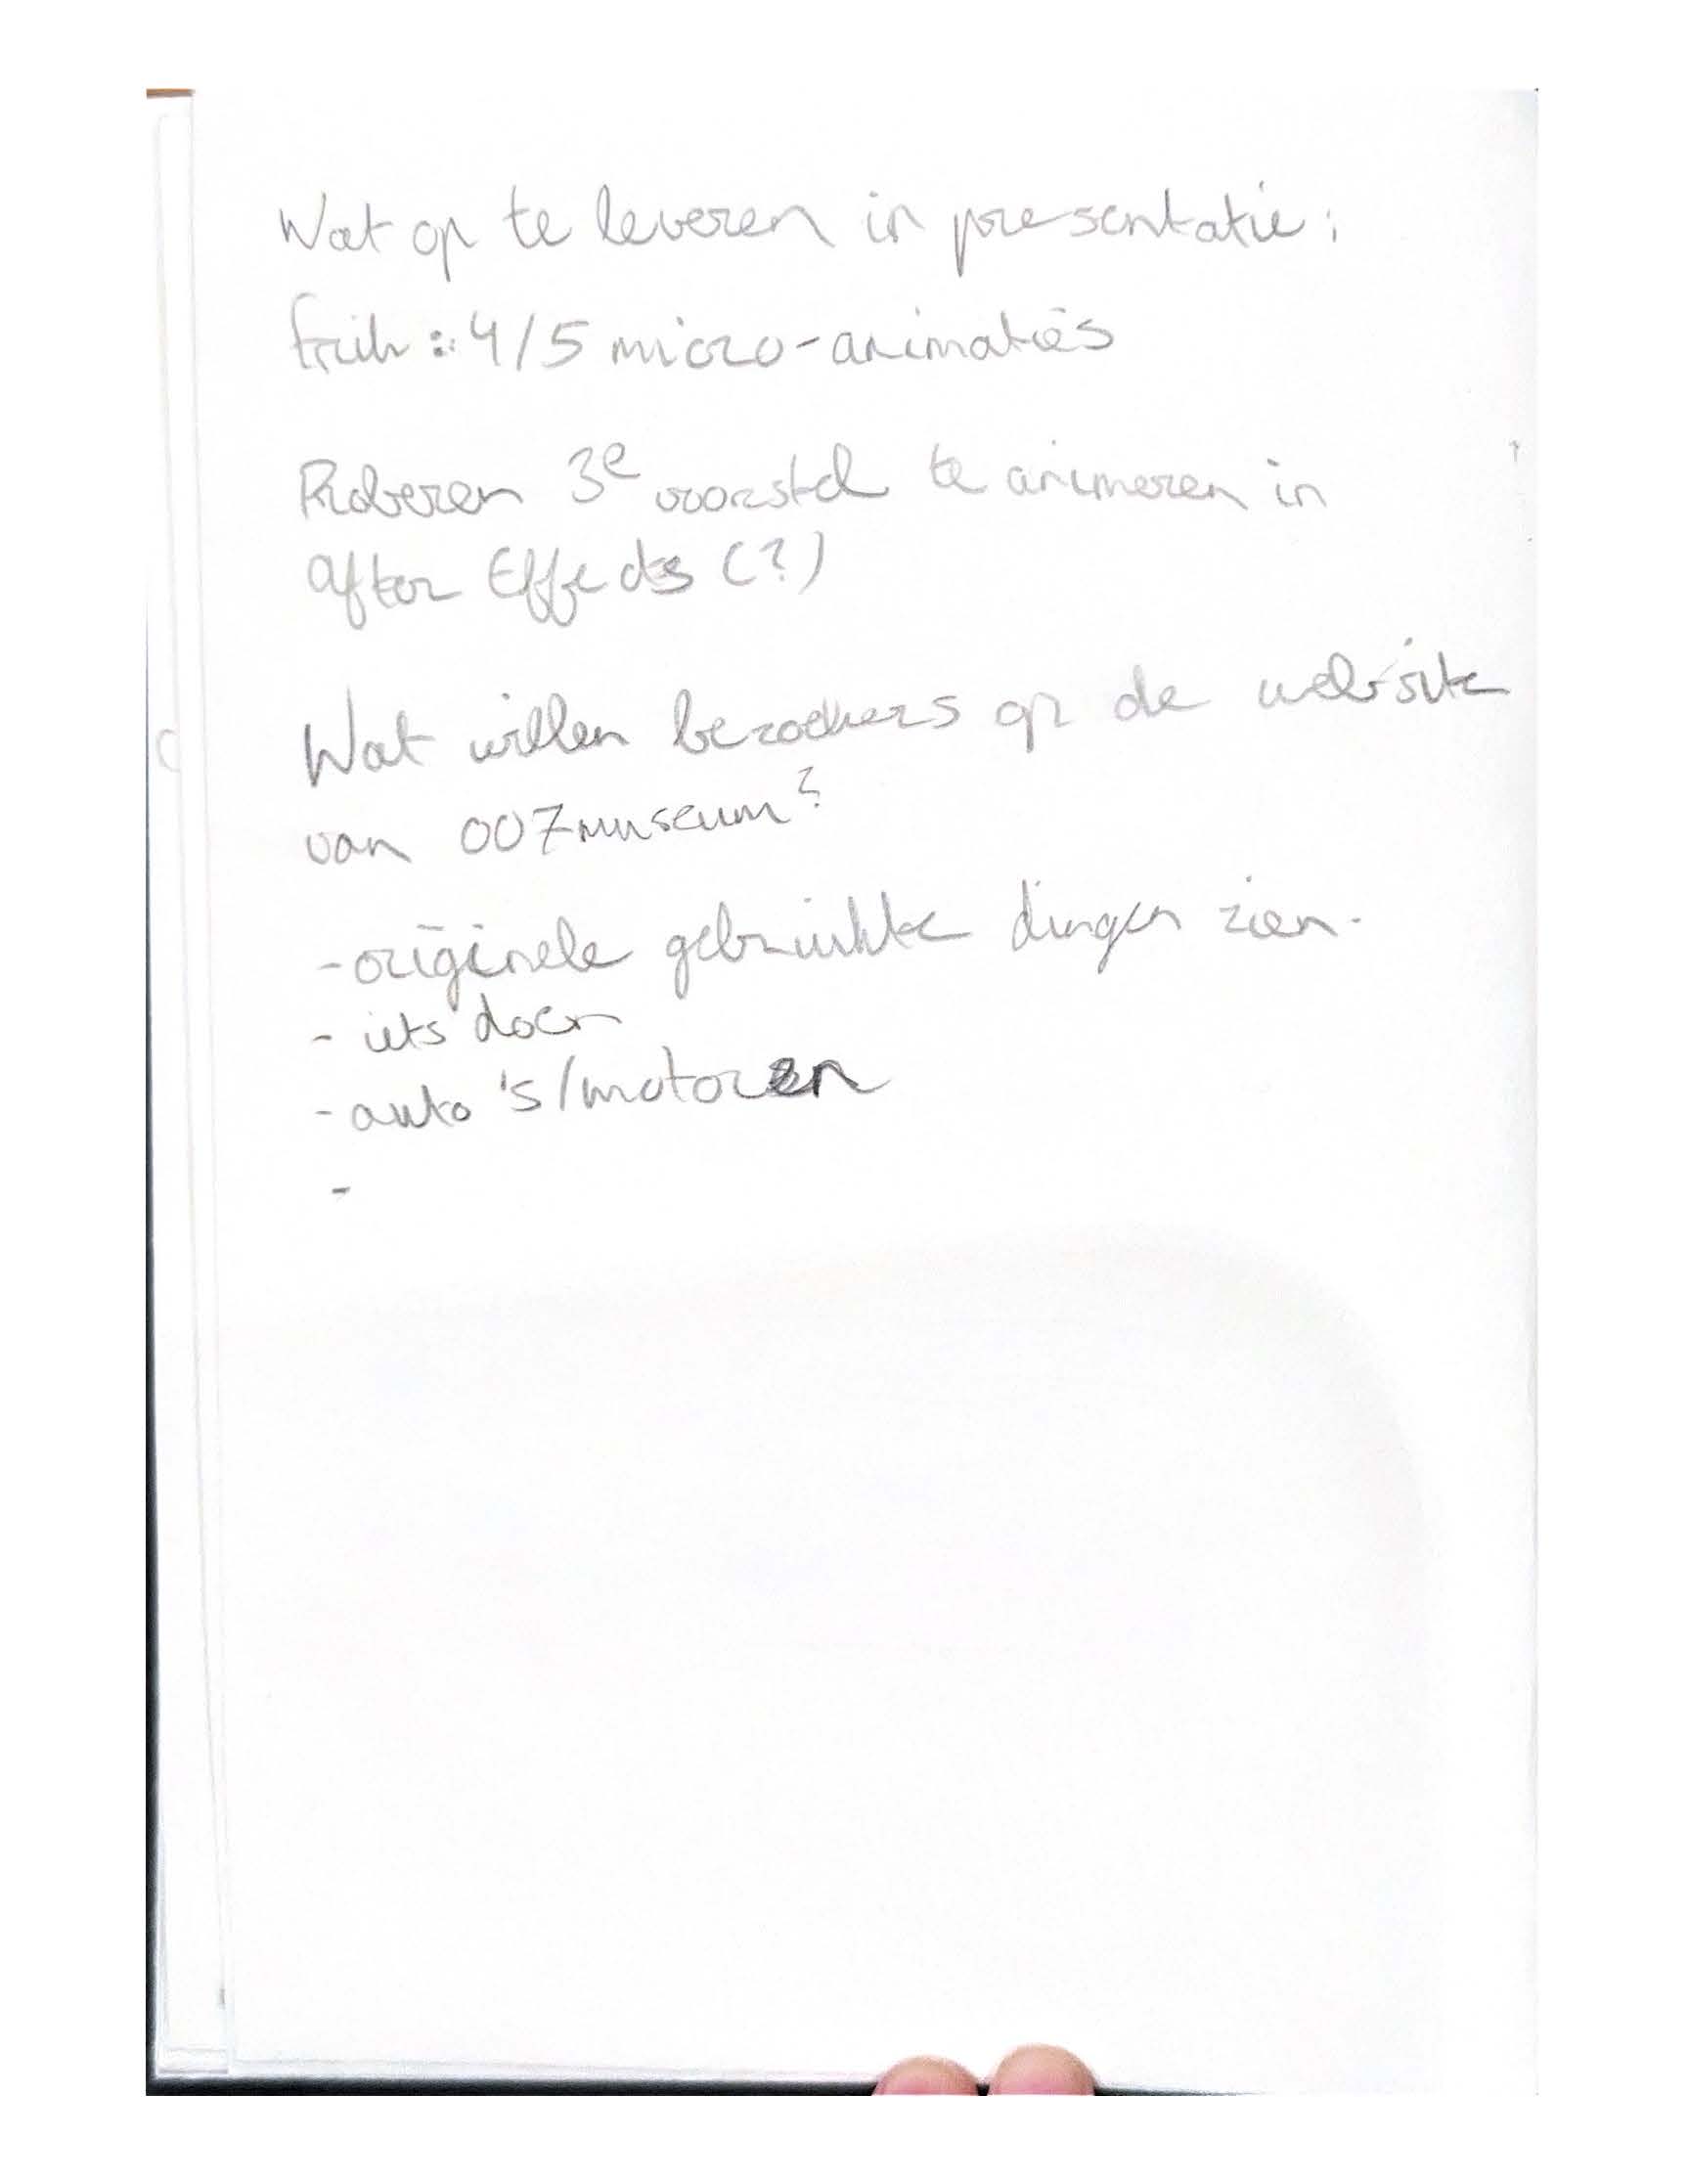 Wat op te leveren in presentatie:
4/5 micro-animaties
Proberen 3e voorstel te animeren in
after Effects (?)
Wat willen bezoekers op de website
van 007museum?
-originele gebruikte dingen zien.
- iets doen
- auto's/motoren
-